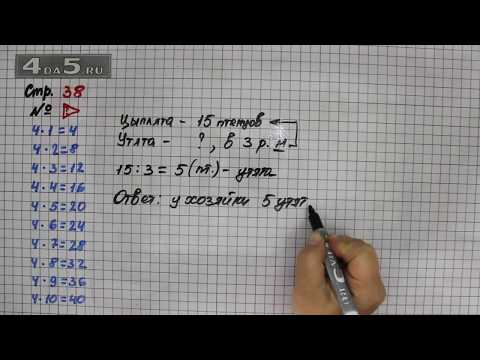 4DA5.RU
Стр. 38
№
4·1=4
4·2=8
4·3=12
4·4=16
4·5=20
4·6=24
4·7=28
4·8=32
4·9=36
4·10=40
Цыплята - 15 метров
Утята - ?, в 3 р. м
15:3=5(м.)- утята
Ответ: у хозяйки 5 утят